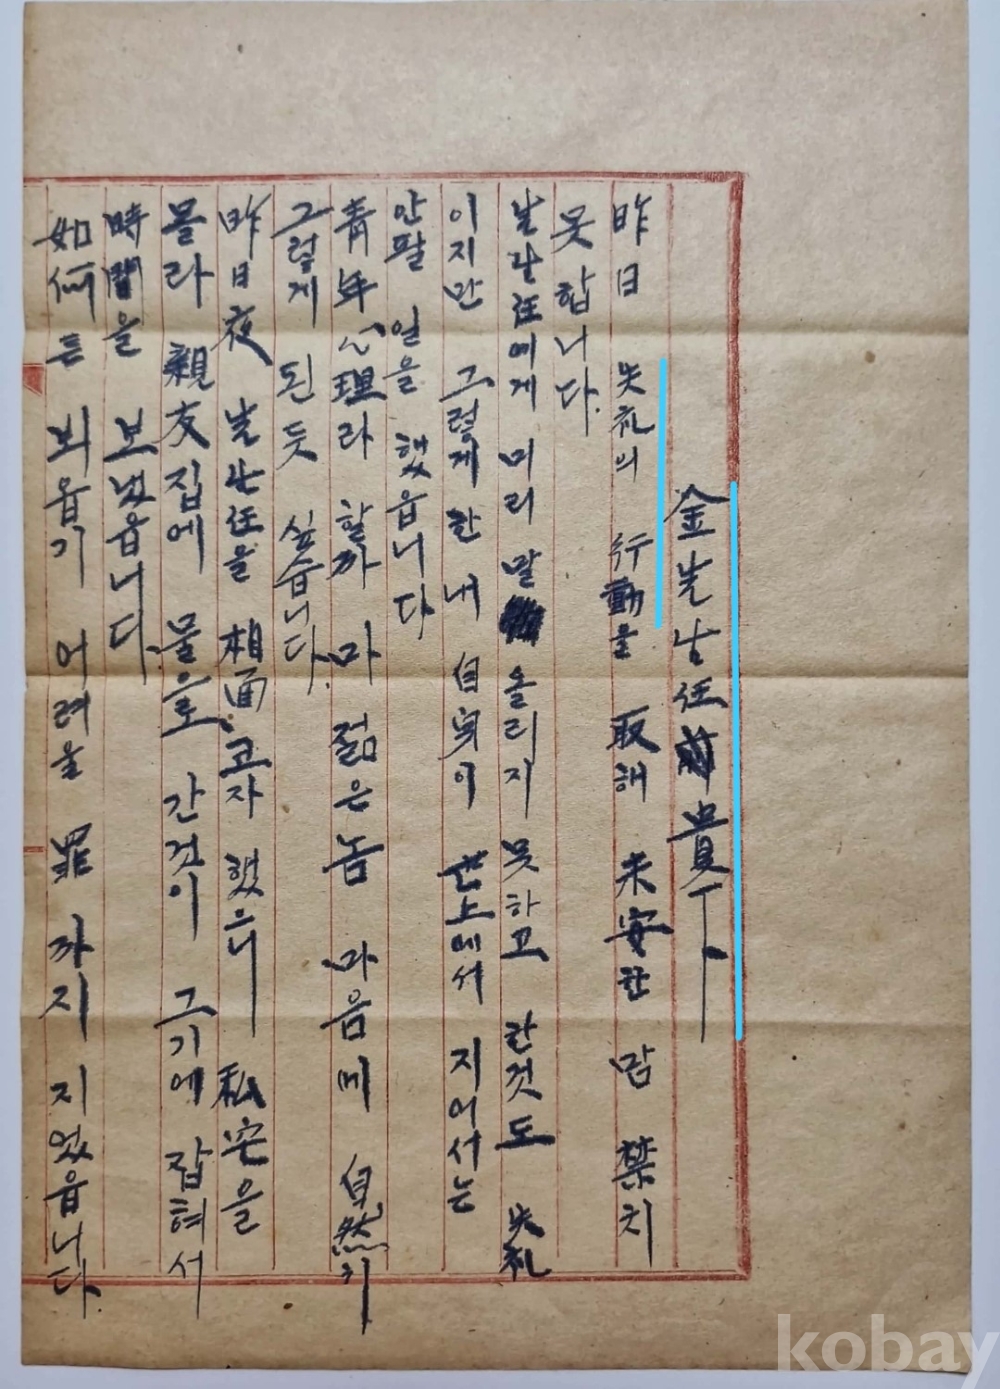 金先生任前 貴下
昨日 失礼의 行動을 取해 未安한 맘 禁치
못합니다.
先生任에게 미리 말 올리지 못하고 한것도 失礼
이지만 그렇게 한 내 自身이 世上에서 지어서는
안팔 일을 했읍니다
青年心理라 할까 마 젊은놈 마음메 自然기
그렇게 된듯 싶습니다.
昨日夜 先生任을 相面코자 했으니 私宅을
몰라 親友집에 물으로 간것이 그기에 잡혀서
時間을 보냈읍니다.
如何튼 뵈옵기 어려울 罪까지 지었읍니다.
kobay